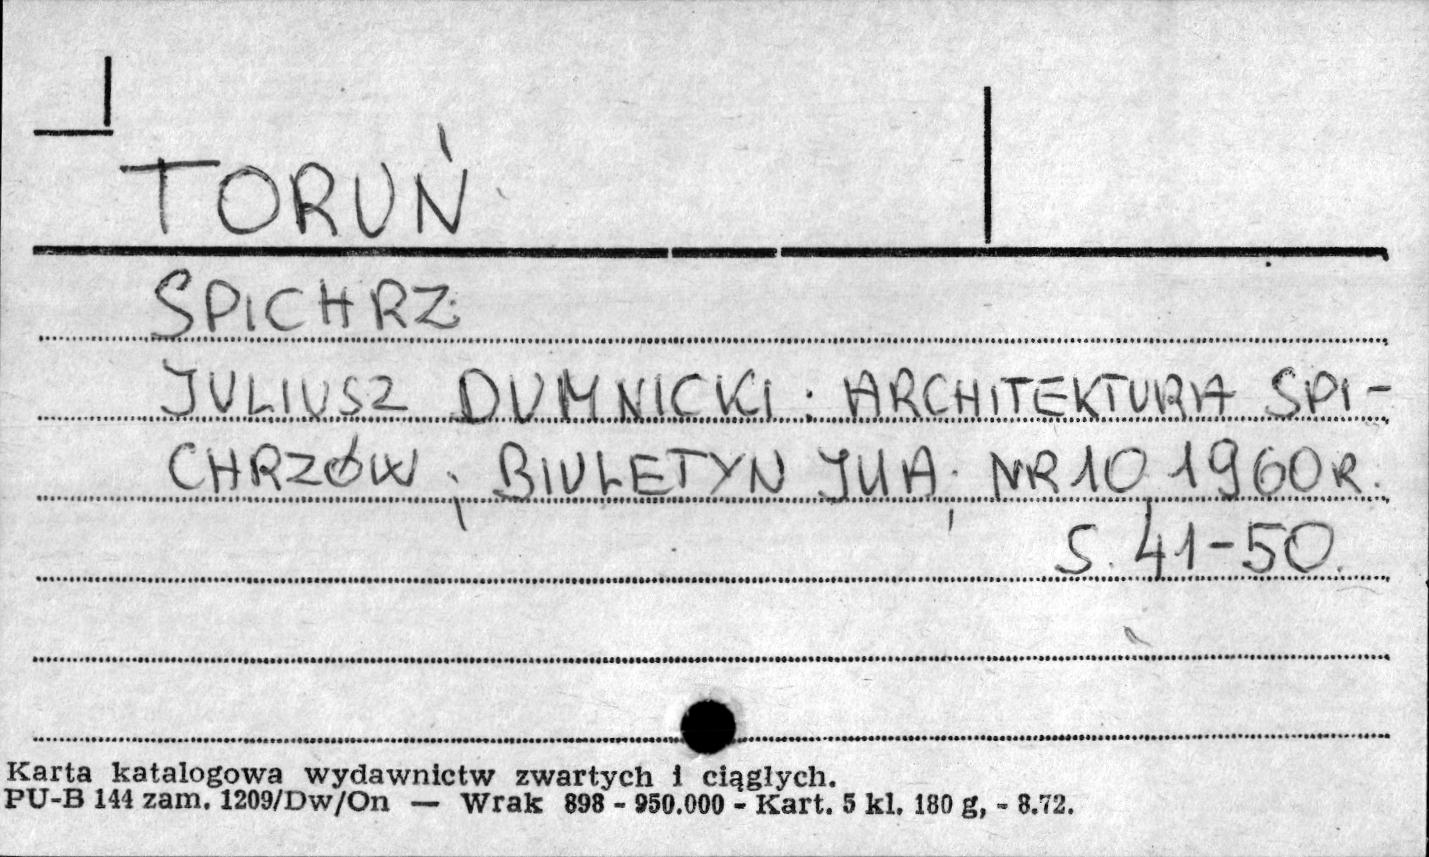 TORUŃ
SPICHRZ
JULIUSZ DUMNICKI : ARCHITEKTURA SPI-
CHRZÓW ; BIULETYN JUA, NR 10 1960 R.
S. 41-50.
Karta katalogowa wydawnictw zwartych i ciągłych.
PU-B 144 zam. 1209/Dw/On — Wrak 898 - 950.000 - Kart. 5 kl. 180 g, - 8.72.